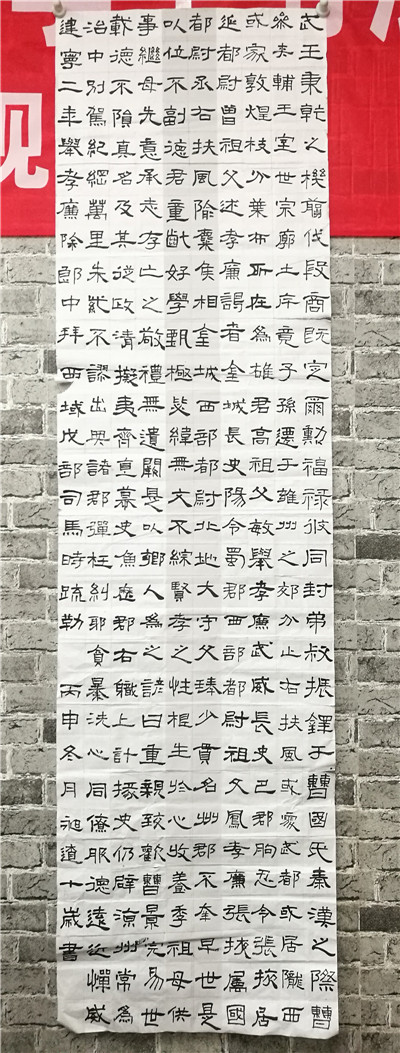 武王秉乾之機翦伐殷商既定爾勳福祿攸同封弟叔振鐸于曹國氏秦漢之際曹
參夾輔王室世宗廓土斥竟子孫遷于雍州之郊分止右扶風或家武都或居隴西
或家敦煌枝分葉布所在為雄君高祖父敏舉孝廉武威長史巴郡朐忍令張掖居
延都尉曾祖父述孝廉謁者金城長史陽令蜀郡西部都尉祖父鳳孝廉張掖屬國
都尉丞右扶風隃麋侯相金城西部都尉北地大守父琫少貫名州郡不幸早世是
以位不副德君童齔好學甄極毖緯無文不綜賢孝之性根生於心收養季祖母供
事繼母先意承志存亡之敬禮無遺闕是以鄉人為之諺曰重親致歡曹景完易世
載德不隕其名及其從政清擬夷齊直慕史魚歷郡右職上計掾史仍辟涼州常為
治中別駕紀綱萬里朱紫不謬出典諸郡彈枉糾邪貪暴洗心同僚服德遠近憚威
建寧二年舉孝廉除郎中拜西域戊部司馬時疏勒 丙申冬月昶 十歲書